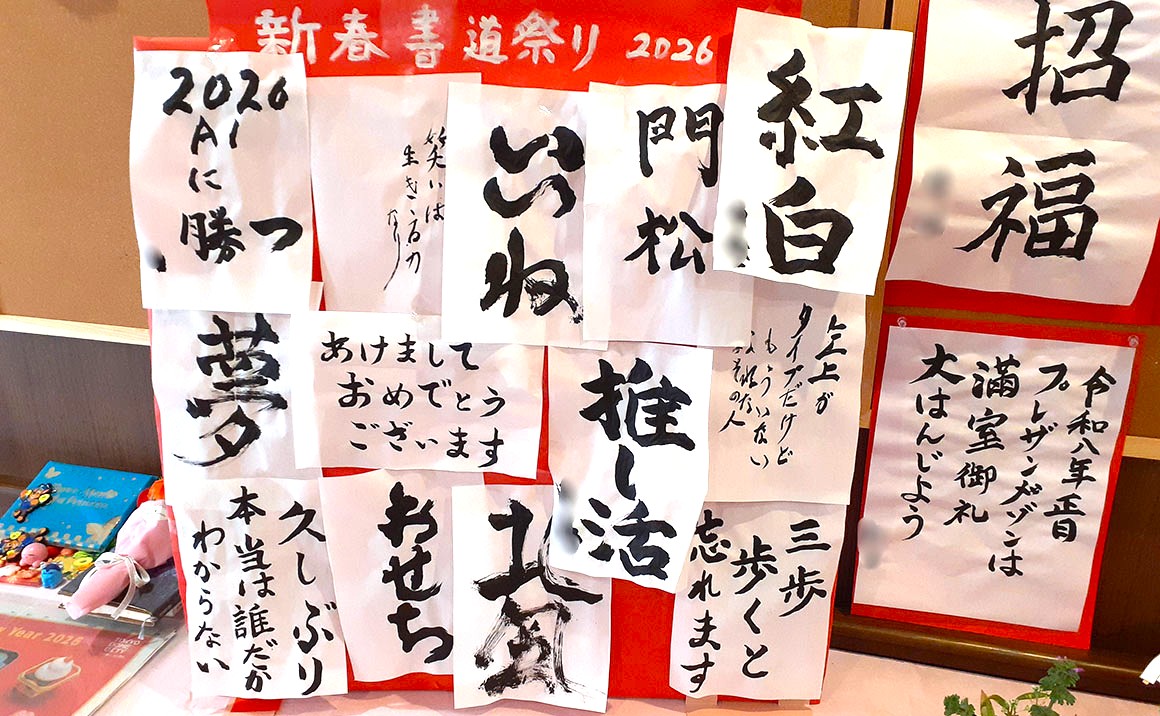 新春書道祭り 2026
2026
AI
に
勝つ
笑いは
生きる力
なり
いいね
門松
紅白
招福
夢
あけまして
おめでとう
ございます
推し活
上上が
タイプだけど
もういない
その人
令和八年正月
プレザンメゾンは
満室御礼
大はんじょう
久しぶり
本当は誰だか
わからない
おせち
三歩
歩くと
忘れます